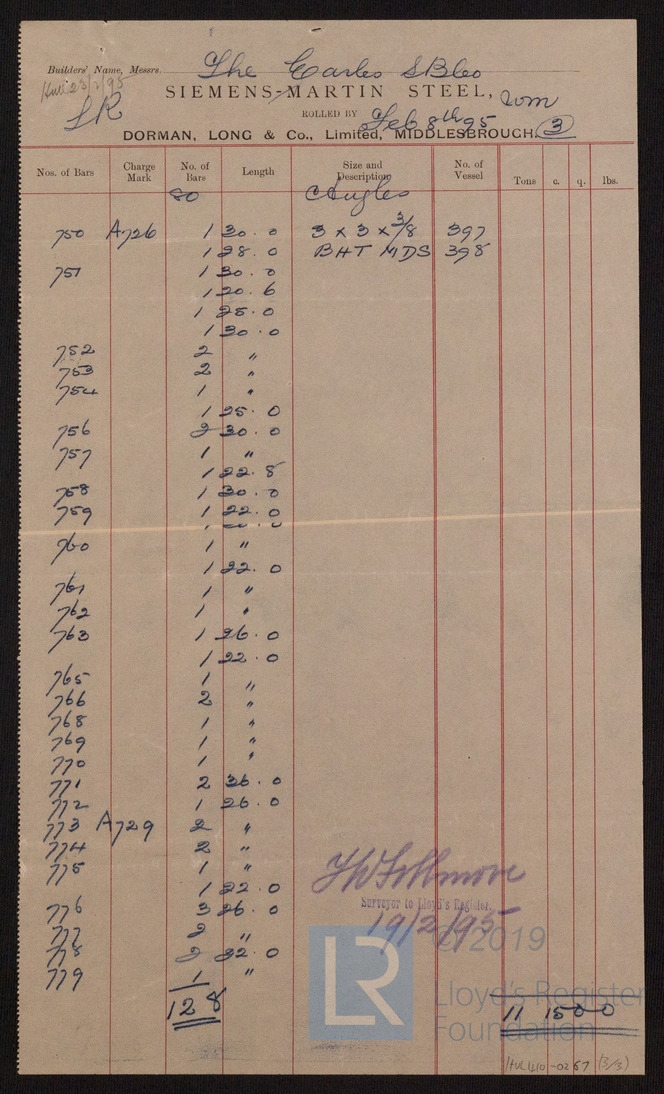 Builders' Name, Messrs. The Earles S B Co
Hull 23/2/95
SIEMENS-MARTIN STEEL,
LR
ROLLED BY Feb 8th 95
DORMAN, LONG & Co., Limited, MIDDLESBROUGH. 3
Nos. of Bars Charge Mark No. of Bars Length Size and Description No. of Vessel Tons c. q. lbs.
80 Angles
750 A726 1 30.0 3 x 3 x 3/8 397
1 28.0 BHT MDS 398
751 1 30.0
1 20.6
1 25.0
1 30.0
752 2 "
753 2 "
754 1 "
1 25.0
756 2 30.0
757 1 "
1 22.8
758 1 30.0
759 1 22.0
760 1 "
1 22.0
761 1 "
762 1 "
763 1 26.0
1 22.0
765 1 "
766 2 "
768 1 "
769 1 "
770 1 "
771 2 36.0
772 1 26.0
773 A729 2 "
774 2 "
775 1 "
1 22.0
776 3 26.0
777 2 "
778 2 22.0
779 1 "
128
Surveyor to Lloyd's Register.
19/2/95
© 2019
LR
Lloyd's Register
Foundation
11 15 0 0
HUL1210-0267 (3/3)